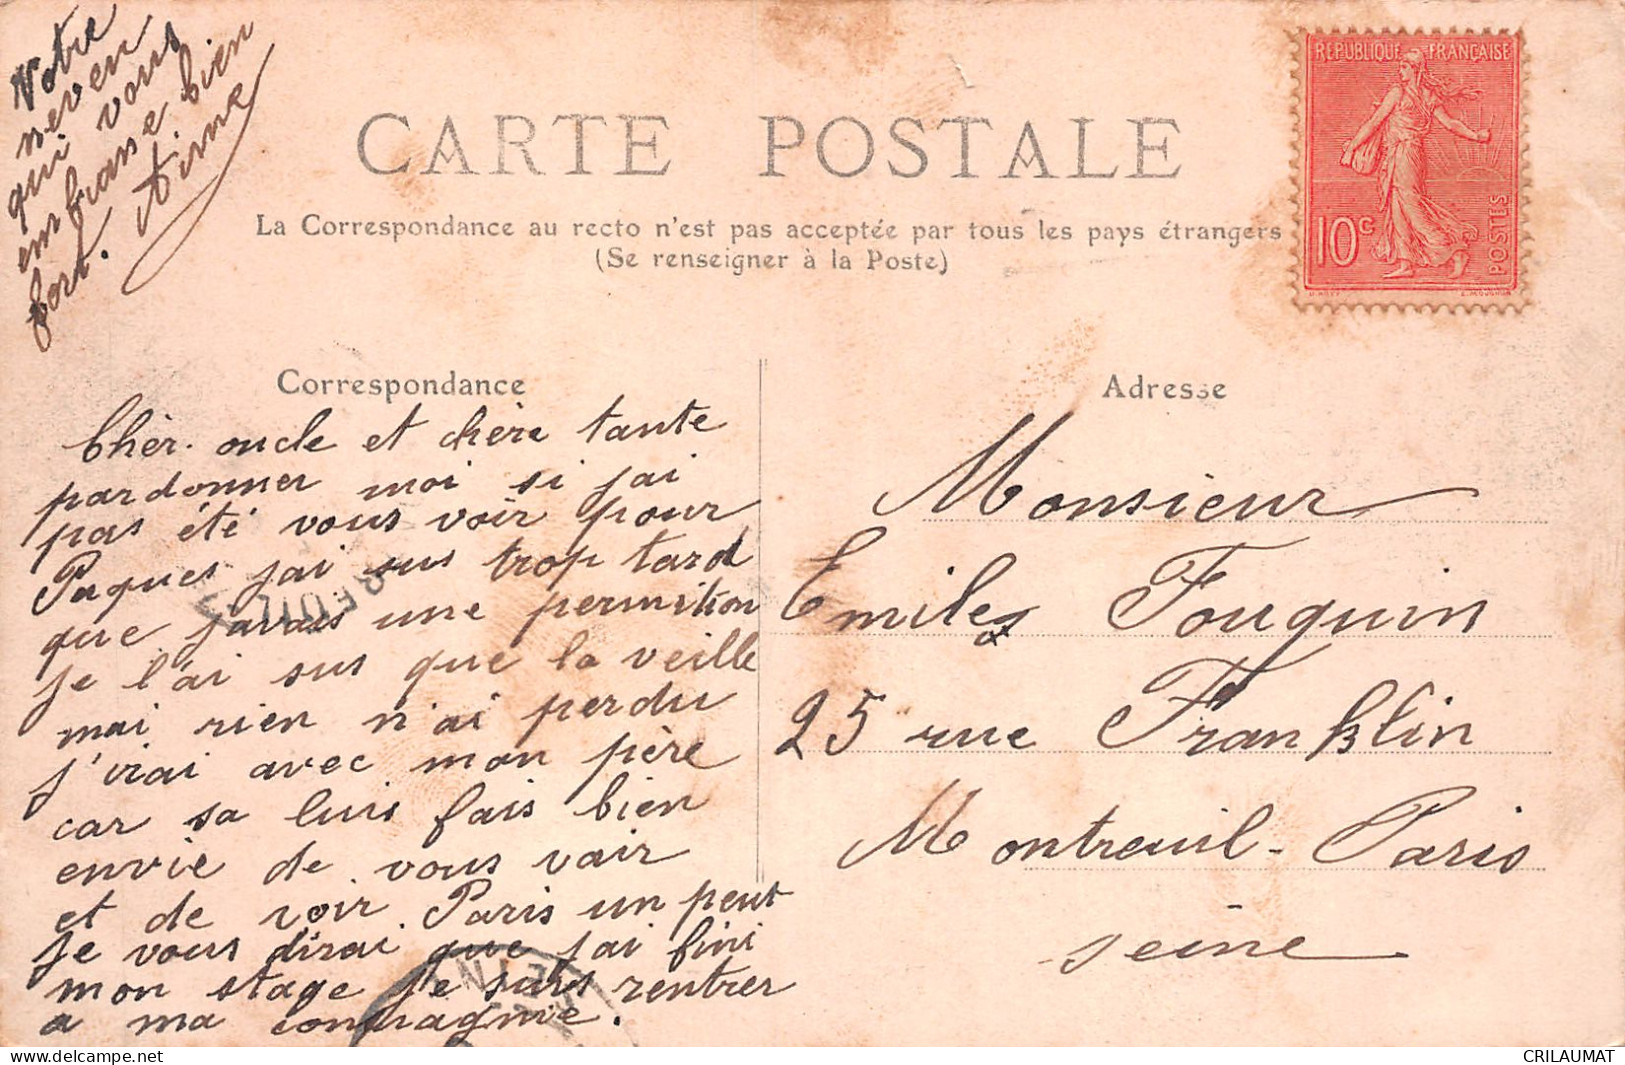 Votre
neveu
qui vous
embrasse bien
fort. Aimé
CARTE POSTALE
La Correspondance au recto n'est pas acceptée par tous les pays étrangers
(Se renseigner à la Poste)
RÉPUBLIQUE FRANÇAISE
10c
POSTES
Correspondance
Chèr. oncle et chère tante
pardonner moi si jai
pas été vous voir pour
Paques jai sus trop tard
que javais une permition
je l'ai sus que la veille
mai rien n'ai perdu
j'irai avec mon père
car sa luis fais bien
envie de vous voir
et de voir Paris un peut
je vous dirai que jai fini
mon stage je suis rentrer
a ma compagnie.
Adresse
Monsieur
Emiles Fouquin
25 rue Franklin
Montreuil - Paris
seine
CRILAUMAT